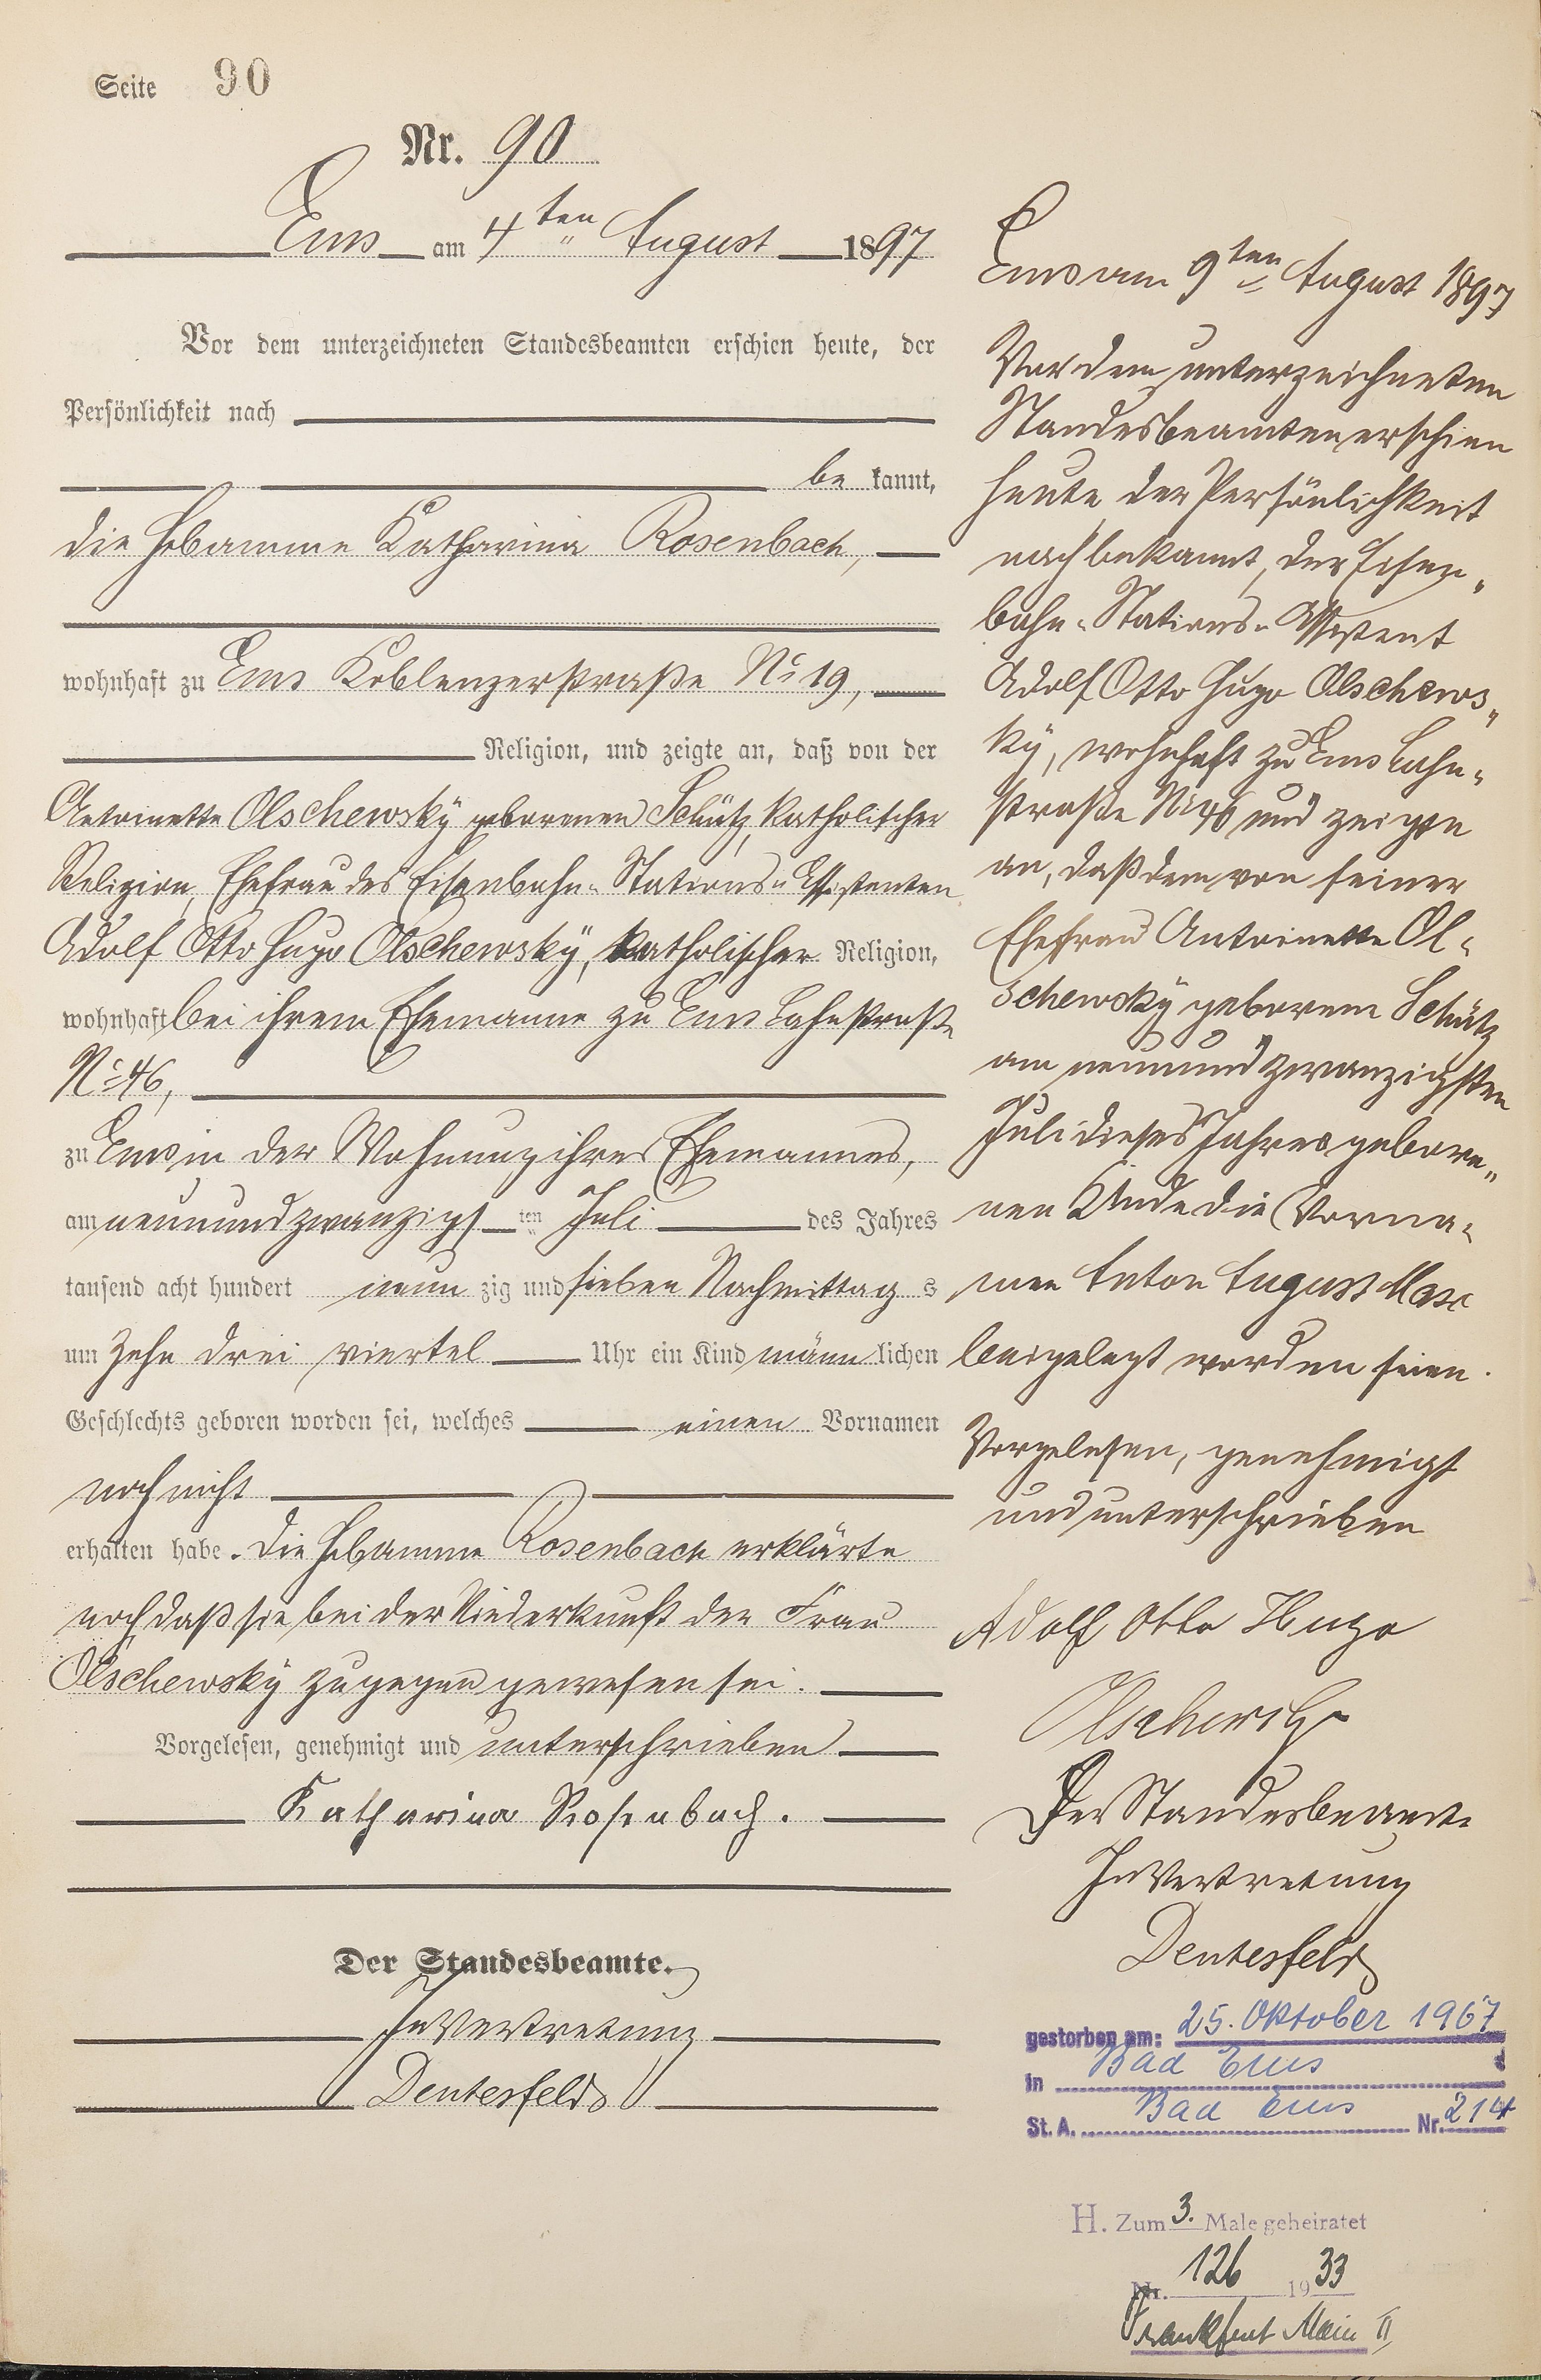 Seite 90
Nr. 90
Ems am 4ten August 1897
Vor dem unterzeichneten Standesbeamten erschien heute, der
Persönlichkeit nach
be kannt,
die Hebamme Katharina Rosenbach,
wohnhaft zu Ems Koblenzerstraße No 19,
Religion, und zeigte an, daß von der
Antoinette Olschewsky geborenen Schütz, katholischer
Religion, Ehefrau des Eisenbahn-Stations-Assistenten
Adolf Otto Hugo Olschewsky, katholischer Religion,
wohnhaft bei ihrem Ehemanne zu Ems Lahnstraße
No 46,
zu Ems in der Wohnung ihres Ehemannes,
am neunundzwanzigsten Juli des Jahres
tausend acht hundert neun zig und sieben Nachmittag s
um zehn drei viertel Uhr ein Kind männ lichen
Geschlechts geboren worden sei, welches einen Vornamen
noch nicht
erhalten habe. Die Hebamme Rosenbach erklärte
noch daß sie bei der Niederkunft der Frau
Olschewsky zugegen gewesen sei.
Vorgelesen, genehmigt und unterschrieben
Katharina Rosenbach.
Der Standesbeamte.
In Vertretung
Dentesfeld
Ems am 9ten August 1897
Vor dem unterzeichneten
Standesbeamten erschien
heute der Persönlichkeit
nach bekannt, der Eisen-
bahn-Stations-Assistent
Adolf Otto Hugo Olschews-
ky, wohnhaft zu Ems Lahn-
straße No 46 und zeigte
an, daß dem von seiner
Ehefrau Antoinette Ol-
schewsky geborene Schütz
am neunundzwanzigsten
Juli dieses Jahres gebore-
nen Kinde die Vorna-
men Anton August Max
beigelegt worden seien.
Vorgelesen, genehmigt
und unterschrieben
Adolf Otto Hugo
Olschewsky
Der Standesbeamte
In Vertretung
Dentesfeld
gestorben am: 25. Oktober 1967
in Bad Ems
St. A. Bad Ems Nr. 214
H. Zum 3. Male geheiratet
Nr. 126 1933
Frankfurt Main II